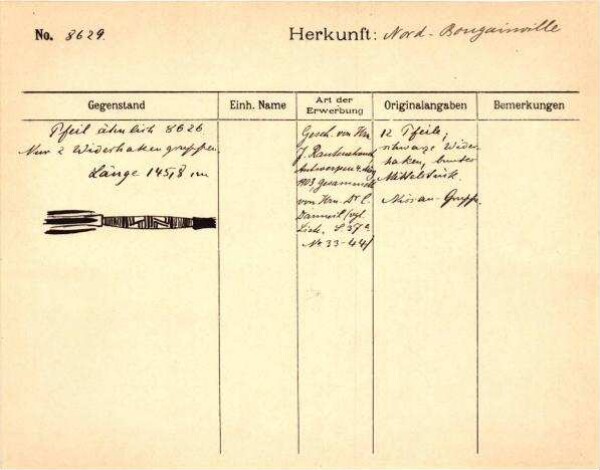 No. 8629.
Herkunft: Nord-Bougainville
Gegenstand
Einh. Name
Art der
Erwerbung
Originalangaben
Bemerkungen
Pfeil ähnlich 8626
Nur 2 Widerhakengruppen
Länge 145,8 cm
Gesch. von Hrn
J.
Antwerpen
1903, gesammelt
von Hrn. Dr C.
(vgl.
S 37a
No 33-44)
12 Pfeile,
schwarze Wider-
haken, bunter
Mittelstück.
Nissan-Gruppe.